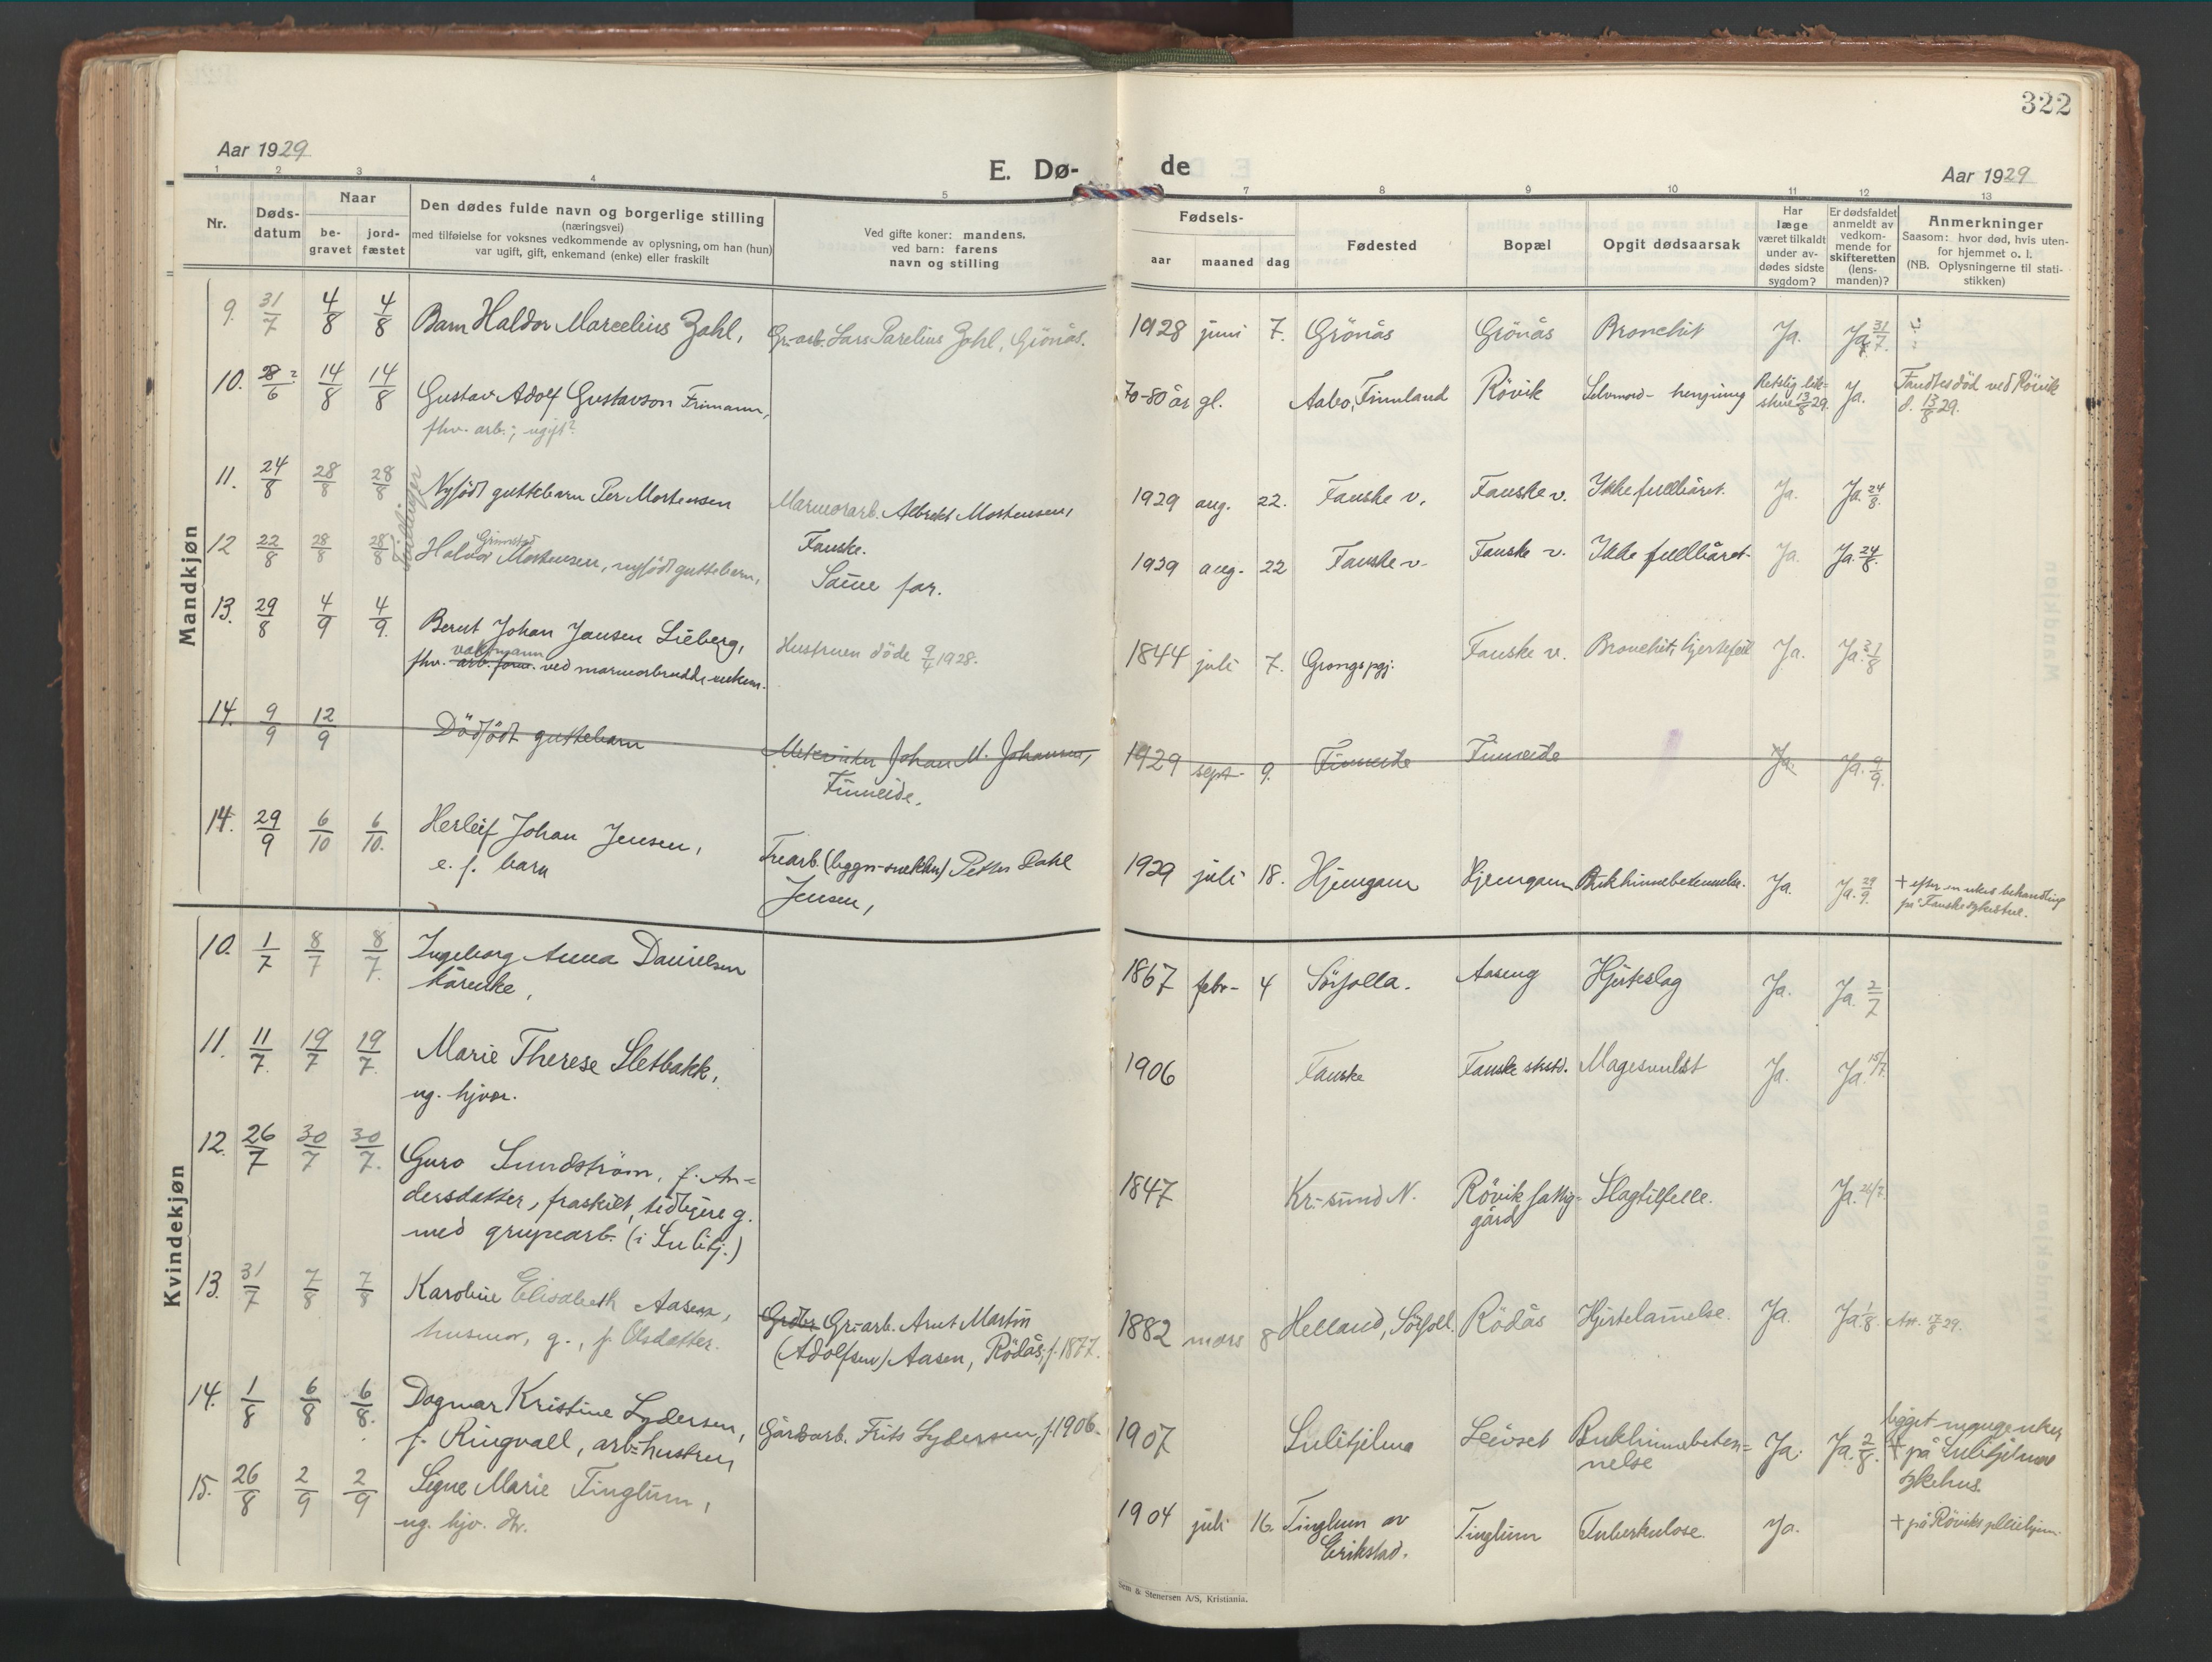 322
Aar 1929
E. Dø-
de
Aar 1929
1 2 3 4 5 7 8 9 10 11 12 13
Nr.
Døds-
datum
Naar
be-
gravet
jord-
fæstet
Den dødes fulde navn og borgerlige stilling
(næringsvei)
med tilføielse for voksnes vedkommende av oplysning, om han (hun)
var ugift, gift, enkemand (enke) eller fraskilt
Ved gifte koner: mandens,
ved barn: farens
navn og stilling
Fødsels-
aar maaned dag
Fødested
Bopæl
Opgit dødsaarsak
Har
læge
været tilkaldt
under av-
dødes sidste
sygdom?
Er dødsfaldet
anmeldt av
vedkom-
mende for
skifteretten
(lens-
manden)?
Anmerkninger
Saasom: hvor død, hvis uten-
for hjemmet o. l.
(NB. Oplysningerne til stati-
stikken)
Mandkjøn
9. 31/7 4/8 4/8 Barn Haldor Marcelius Zahl, Gr.-arb. Lars Parelius Zahl, Grönås. 1928 juni 7. Grönås Grönås Bronchit Ja. Ja 31/7.
10. 28/6 ? 14/8 14/8 Gustav Adolf Gustavson Frimann, 70-80 år gl. Aabo, Finnland Rövik Selvmord - hengning Retslig lik-
skue 13/8 29. Ja. Fandtes død ved Rövik
d. 13/8 29.
fhv. arb.; ugift?
Tvillinger
11. 24/8 28/8 28/8 Nyfödt guttebarn Per Mortensen Marmorarb. Albrekt Mortensen, 1929 aug. 22. Fauske v. Fauske v. Ikke fullbåret. Ja. Ja. 24/8.
Fauske.
12 22/8 28/8 28/8 Halvor Grimstad Mortensen, nyfödt guttebarn, Same far. 1929 aug. 22 Fauske v. Fauske v. Ikke fullbåret. Ja. Ja. 24/8.
13. 29/8 4/9 4/9. Bernt Johan Jansen Lieberg, Hustruen döde 9/4 1928. 1844 juli 7. Grongs pgj. Fauske v. Bronchit, hjertefeil Ja. Ja. 31/8
vaktmann
fhv. arb. form. ved marmorbrudd, enkem.
14. 9/9 12/9 Dödfödt guttebarn Johan M. Johansen, 1929 sept. 9. Finneide Finneide Ja. Ja. 9/9.
Finneide.
14. 29/9 6/10 6/10. Herleif Johan Jensen, Trearb. (bygn-snekker) Petter Dahl 1929 juli 18. Hjemgam Hjemgam Bukhinnebetennelse. Ja. Ja. 29/9. + efter en ukes behandling
på Fauske sykestue.
e. f. barn
Jensen,
Kvindekjøn
10. 1/7 8/7 8/7. Ingeborg Anna Danielsen 1867 febr. 4 Sörfolla. Aaseng Hjerteslag Ja. Ja. 2/7
kårenke,
11. 11/7. 19/7 19/7. Marie Therese Sletbakk, 1906 Fauske Fauske skstd. Magesvulst Ja. Ja. 15/7.
ug. hjvær.
12. 26/7 30/7 30/7. Guro Sundström, f. An-
dersdatter, fraskilt, tidligere g.
med grupearb. (i Sulitj.) 1847 Kr.-sund N. Rövik fattig-
gård Slagtilfelle. Ja. 26/7.
13. 31/7 7/8 7/8 Karoline Elisabeth Aasen, Gr.-arb. Arnt Martin
husmor, g., f. Olsdatter. (Adolfsen) Aasen, Rödås, f. 1877. 1882 mars 8 Helland, Sörfoll. Rödås Hjertelammelse. Ja. Ja. 1/8. Att. 17/8 29.
14. 1/8 6/8 6/8. Dagmar Kristine Lydersen, Gårdsarb. Frits Lydersen, f. 1906. 1907 Sulitjelma Leivset Bukhinnebeten-
nelse Ja. Ja. 2/8. ligget mange uker
+ på Sulitjelma
sykehus.
f. Ringvall, arb.-hustru
15. 26/8 2/9 2/9 Signe Marie Tinglum, 1904 juli 16. Tinglum av
Erikstad. Tinglum Tuberkulose. Ja. + på Röviks pleiehjem.
ug. hjv. dtr.
Sem & Stenersen A/S, Kristiania.